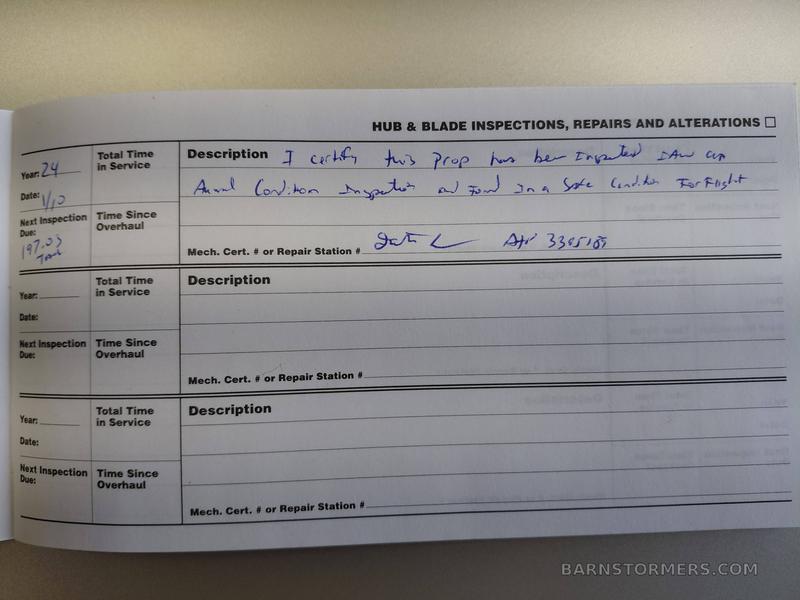 HUB & BLADE INSPECTIONS, REPAIRS AND ALTERATIONS
Year: 24
Total Time in Service
Description I certify this Prop has been Inspected IAW an
Date: 1/10
Annual Condition Inspection and Found In a Safe Condition For Flight
Next Inspection Due:
197.03
Time Since Overhaul
Mech. Cert. # or Repair Station #
Year:
Total Time in Service
Description
Date:
Next Inspection Due:
Time Since Overhaul
Mech. Cert. # or Repair Station #
Year:
Total Time in Service
Description
Date:
Next Inspection Due:
Time Since Overhaul
Mech. Cert. # or Repair Station #
BARNSTORMERS.COM